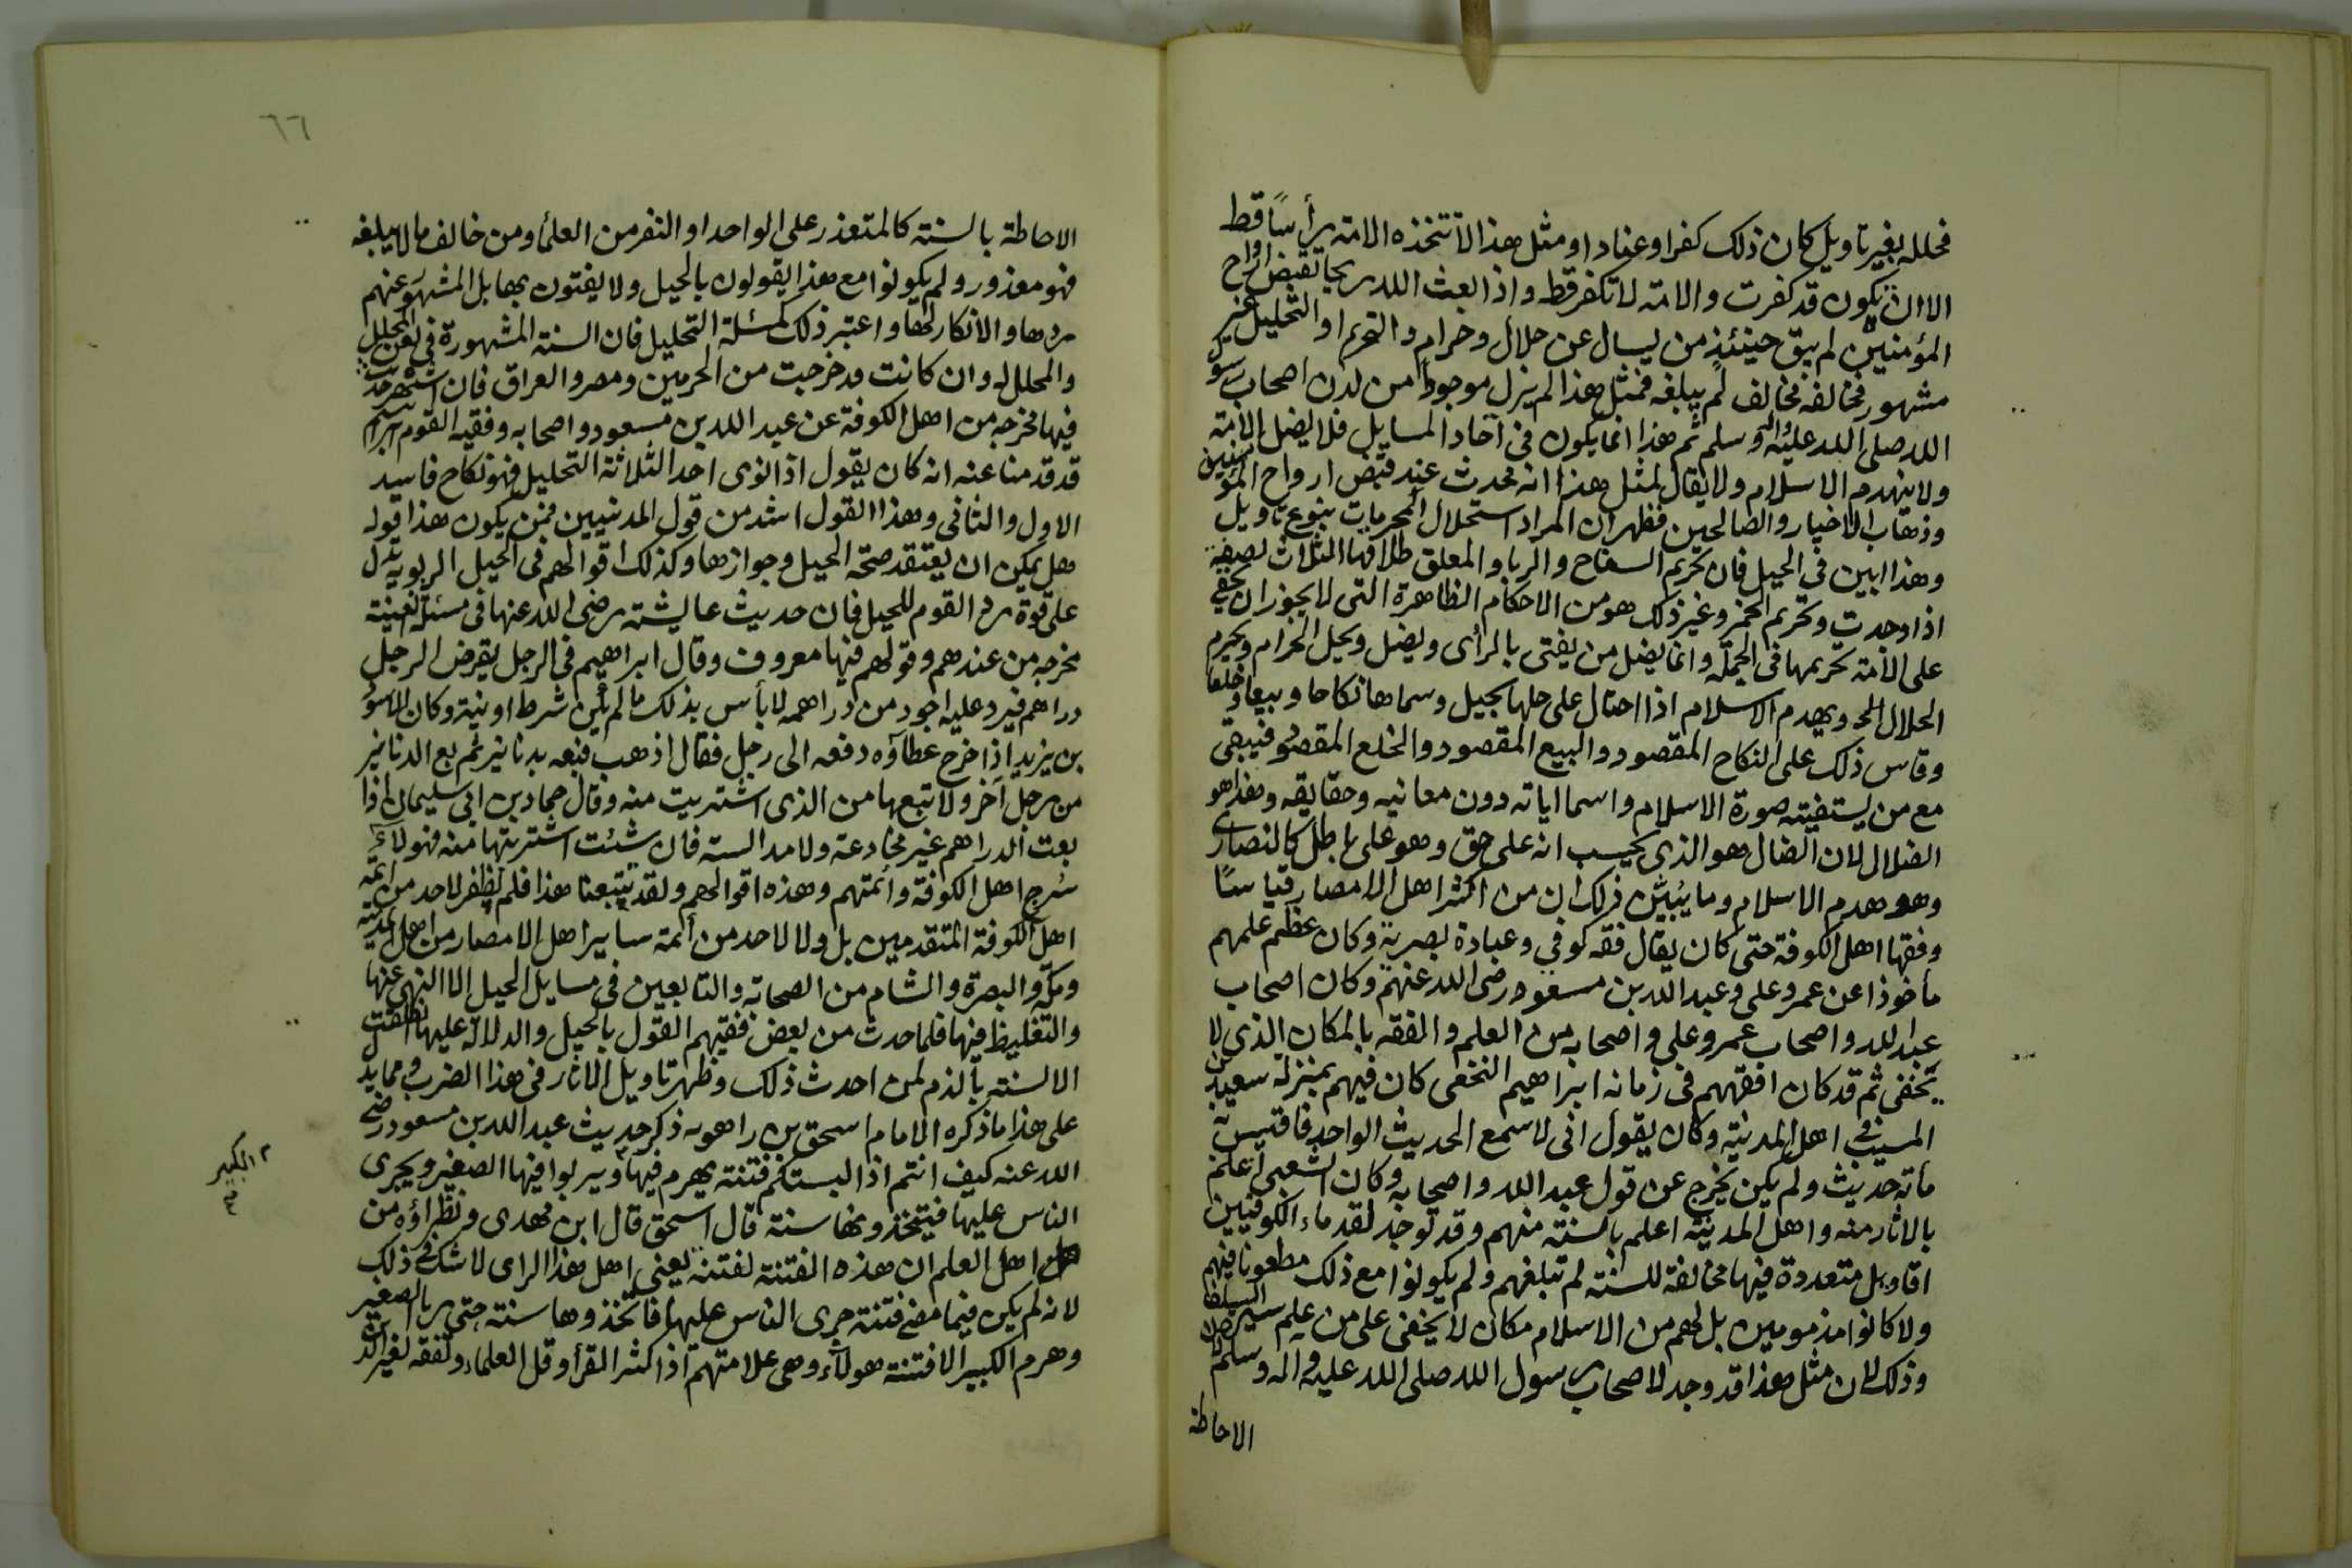 فحلله بغير تاويل كان ذلك كفرا وعنادا ومثل هذا لا تتخذه الامة رأسا قط
الا ان يكون قد كفرت والامة لا تكفر قط واذا بعث الله ريحا تقبض ارواح
المؤمنين لم يبق حينئذ من يسال عن حلال وحرام والتحريم او التحليل غير
مشهور فخالفه مخالف لم يبلغه فمثل هذا لم يزل موجودا من لدن اصحاب رسول
الله صلى الله عليه واله وسلم ثم هذا انما يكون في آحاد المسايل فلا يضل الامة
ولا ينهدم الاسلام ولا يقال لمثل هذا انه محدث عند قبض ارواح المؤمنين
وذهاب الاخيار والصالحين فظهر ان المراد استحلال المحرمات بنوع تاويل
وهذا ابين في الحيل فان تحريم السفاح والربا والمعلق طلاقها الثلاث بصفة
اذا وجدت وتحريم الخمر وغير ذلك هو من الاحكام الظاهرة التي لا يجوز ان يخفى
على الامة تحريمها في الجملة وانما يضل من يفتي بالرأى ويضل ويحل الحرام ويحرم
الحلال ويهدم الاسلام اذا احتال على حلها بحيل وسماها نكاحا وبيعا وخلعا
وقاس ذلك على النكاح المقصود والبيع المقصود والخلع المقصود فيبقى
مع من يستفيته صورة الاسلام واسما اياته دون معانيه وحقايقه وهذا هو
الضلال لان الضال هو الذي يحسب انه على حق وهو على باطل كالنصارى
وهو هدم الاسلام وما يبين ذلك ان من اكثر اهل الامصار قياسا
وفقها اهل الكوفة حتى كان يقال فقه كوفي وعبادة بصرية وكان عظم علمهم
مأخوذا عن عمر وعلي وعبد الله بن مسعود رضى الله عنهم وكان اصحاب
عبد الله واصحاب عمر وعلي واصحابه من العلم والفقه بالمكان الذي لا
يخفى ثم قد كان افقههم في زمانه ابراهيم النخعى كان فيهم بمنزلة سعيد بن
المسيب في اهل المدينة وكان يقول اني لاسمع الحديث الواحد فاقيس به
مأته حديث ولم يكن يخرج عن قول عبد الله واصحابه وكان الشعبي اعلم
بالاثار منه واهل المدينة اعلم بالسنة منهم وقد توجد لقدماء الكوفيين
اقاويل متعددة فيها مخالفة للسنة لم تبلغهم ولم يكونوا مع ذلك مطعونا فيهم
ولا كانوا مذمومين بل لهم من الاسلام مكان لا يخفى على من علم سير السلف
وذلك لان مثل هذا قد وجد لاصحاب رسول الله صلى الله عليه واله وسلم لان
الاحاطة
٦٦
الاحاطة بالسنة كالمتعذر على الواحد او النفر من العلماء ومن خالف ما لا يبلغه
فهو معذور ولم يكونوا مع هذا يقولون بالحيل ولا يفتون بها بل المشهور عنهم
ردها والانكار لها واعتبر ذلك بمسئلة التحليل فان السنة المشهورة في لعن المحلل
والمحلل له وان كانت قد خرجت من الحرمين ومصر والعراق فان اشهر حديث
فيها مخرجه من اهل الكوفة عن عبد الله بن مسعود واصحابه وفقيه القوم ابراهيم
قد قدمنا عنه انه كان يقول اذا نوى احد الثلاثة التحليل فهو نكاح فاسد
الاول والثاني وهذا القول اشد من قول المدنيين فمن يكون هذا قوله
هل يمكن ان يعتقد صحة الحيل وجوازها وكذلك اقوالهم في الحيل الربوية تدل
على قوة رد القوم للحيل فان حديث عايشة رضى الله عنها في مسئلة العينة
مخرجه من عندهم وقولهم فيها معروف وقال ابراهيم في الرجل يقرض الرجل
دراهم فيرد عليه اجود من دراهمه لا بأس بذلك ما لم يكن شرط او نية وكان الاسود
بن يزيد اذا خرج عطاؤه دفعه الى رجل فقال اذهب فبعه بدنانير ثم بع الدنانير
من رجل آخر ولا تبعها من الذى اشتريت منه وقال حماد بن ابي سليمان اذا
بعت الدراهم غير مخادعة ولا مدالسة فان شئت اشتريتها منه فهؤلاء
سرج اهل الكوفة وائمتهم وهذه اقوالهم ولقد تتبعنا هذا فلم نظفر لاحد من ائمة
اهل الكوفة المتقدمين بل ولا لاحد من أئمة ساير اهل الامصار من اهل المدينة
ومكة والبصرة والشام من الصحابة والتابعين في مسايل الحيل الا النهى عنها
والتغليظ فيها فلما حدث من بعض فقيههم القول بالحيل والدلالة عليها انطلقت
الالسنة بالذم لمن احدث ذلك وظهر تاويل الاثار في هذا الضرب ومما يدل
على هذا ما ذكره الامام اسحق بن راهويه ذكر حديث عبد الله بن مسعود رضى
الله عنه كيف انتم اذا البستكم فتنة يهرم فيها ويربوا فيها الصغير ويجرى
الكبير
الناس عليها فيتخذونها سنة قال اسحق قال ابن مهدى ونظراؤه من
اهل العلم ان هذه الفتنة لفتنة يعني اهل هذا الراى لا شك في ذلك
لانه لم يكن فيما مضى فتنة جرى الناس عليها فاتخذوها سنة حتى ربا الصغير
وهرم الكبير الا فتنة هولاء وهى علامتهم اذا كثر القرأ وقل العلماء وتفقه لغير الدين